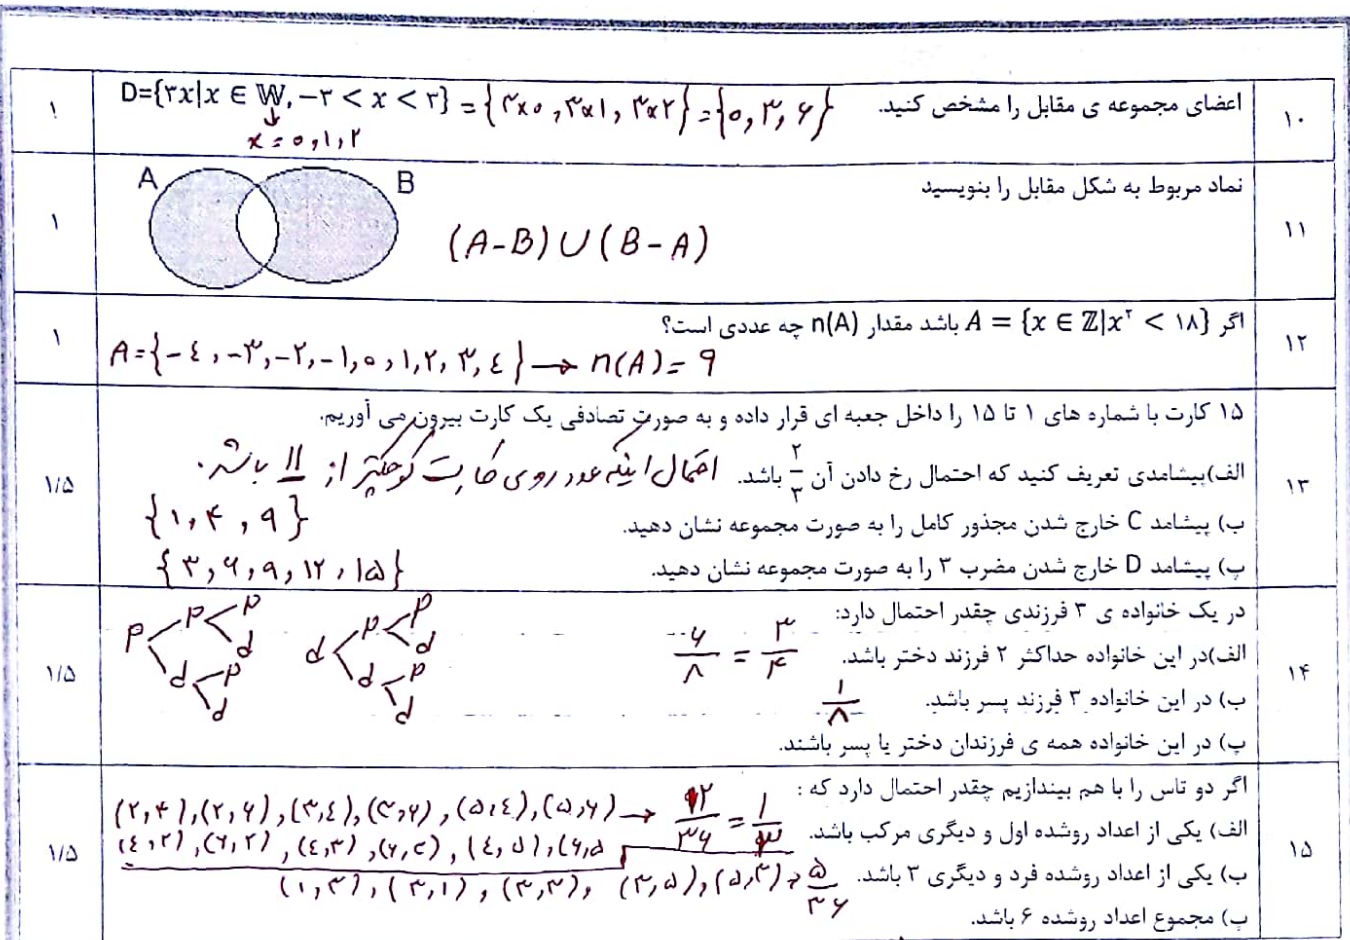 ۱۰ اعضای مجموعه ی مقابل را مشخص کنید. D={۳x|x ∈ 𝕎, −۲ < x < ۳} = {۳×۰, ۳×۱, ۳×۲} = {۰, ۳, ۶} ۱
↓
x = ۰, ۱, ۲
۱۱ نماد مربوط به شکل مقابل را بنویسید ۱
A B
(A-B) ∪ (B-A)
۱۲ اگر A = {x ∈ ℤ|x² < ۱۸} باشد مقدار n(A) چه عددی است؟ ۱
A={-٤, -۳, -۲, -۱, ۰, ۱, ۲, ۳, ٤} → n(A) = ۹
۱۵ کارت با شماره های ۱ تا ۱۵ را داخل جعبه ای قرار داده و به صورت تصادفی یک کارت بیرون می آوریم.
۱۳ الف)پیشامدی تعریف کنید که احتمال رخ دادن آن ۲/۳ باشد. احتمال اینکه عدد روی کارت کوچکتر از ۱۱ باشد. ۱/۵
ب) پیشامد C خارج شدن مجذور کامل را به صورت مجموعه نشان دهید. {۱, ۴, ۹}
پ) پیشامد D خارج شدن مضرب ۳ را به صورت مجموعه نشان دهید. {۳, ۶, ۹, ۱۲, ۱۵}
در یک خانواده ی ۳ فرزندی چقدر احتمال دارد:
۱۴ الف)در این خانواده حداکثر ۲ فرزند دختر باشد. ۶/۸ = ۳/۴ ۱/۵
ب) در این خانواده ۳ فرزند پسر باشد. ۱/۸
پ) در این خانواده همه ی فرزندان دختر یا پسر باشند.
P P P d d P d
d P P d d P d
اگر دو تاس را با هم بیندازیم چقدر احتمال دارد که :
(۲,۴),(۲,۶),(۳,٤),(۳,۶),(۵,٤),(۵,۶) → ۱۲/۳۶ = ۱/۳
۱۵ الف) یکی از اعداد روشده اول و دیگری مرکب باشد. ۱/۵
(٤,۲),(۶,۲),(٤,۳),(۶,۳),(٤,۵),(۶,۵
ب) یکی از اعداد روشده فرد و دیگری ۳ باشد.
(۱,۳),(۳,۱),(۳,۳),(۳,۵),(۵,۳) → ۵/۳۶
پ) مجموع اعداد روشده ۶ باشد.